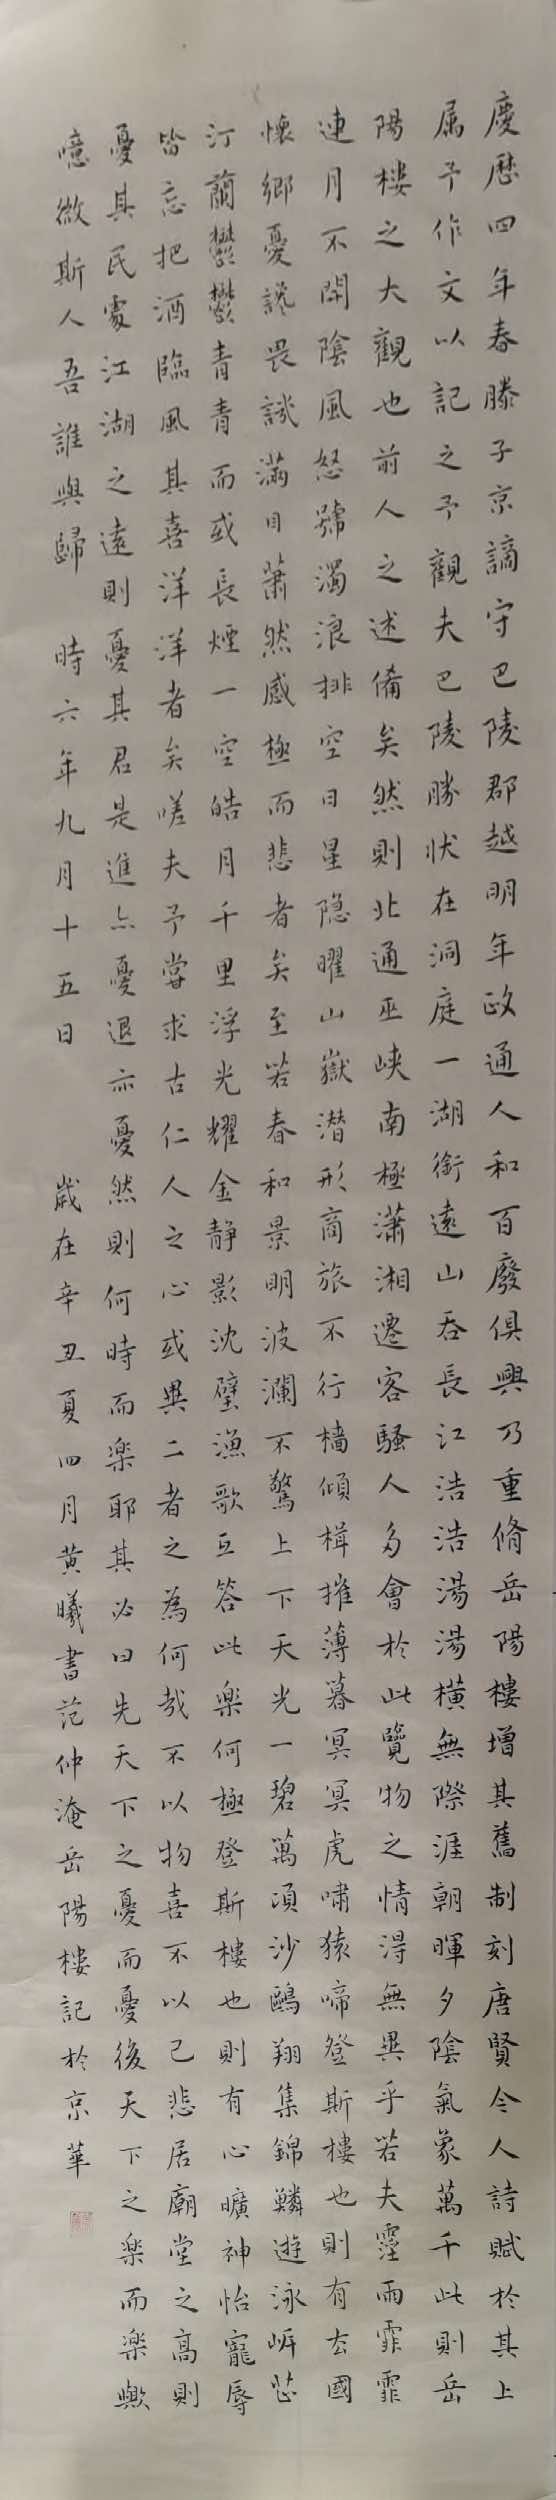 慶歷四年春滕子京謫守巴陵郡越明年政通人和百廢俱興乃重脩岳陽樓增其舊制刻唐賢今人詩賦於其上
属予作文以記之予觀夫巴陵勝狀在洞庭一湖銜遠山吞長江浩浩湯湯橫無際涯朝暉夕陰氣象萬千此則岳
陽樓之大觀也前人之述備矣然則北通巫峽南極瀟湘遷客騷人多會於此覽物之情得無異乎若夫霪雨霏霏
連月不開陰風怒號濁浪排空日星隱曜山嶽潛形商旅不行檣傾楫摧薄暮冥冥虎嘯猿啼登斯樓也則有去國
懷鄉憂讒畏譏滿目蕭然感極而悲者矣至若春和景明波瀾不驚上下天光一碧萬頃沙鷗翔集錦鱗遊泳岸芷
汀蘭鬱鬱青青而或長煙一空皓月千里浮光耀金静影沈璧漁歌互答此樂何極登斯樓也則有心曠神怡寵辱
皆忘把酒臨風其喜洋洋者矣嗟夫予嘗求古仁人之心或異二者之為何哉不以物喜不以己悲居廟堂之高則
憂其民處江湖之遠則憂其君是進亦憂退亦憂然則何時而樂耶其必曰先天下之憂而憂後天下之樂而樂歟
噫微斯人吾誰與歸 時六年九月十五日 歲在辛丑夏四月黄曦書范仲淹岳陽樓記於京華